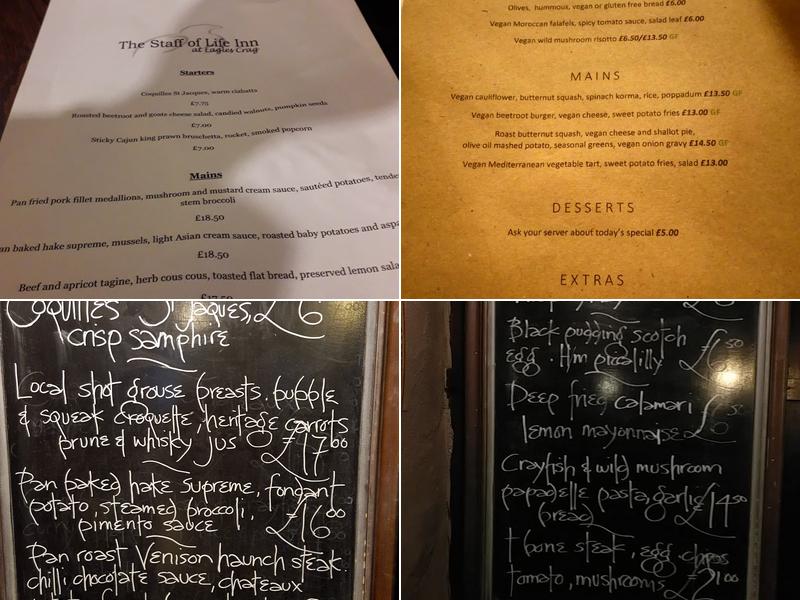 The Staff of Life Inn
at Eagles Crag
Starters
Coquilles St Jacques, warm ciabatta
£7.75
Roasted beetroot and goats cheese salad, candied walnuts, pumpkin seeds
£7.00
Sticky Cajun king prawn bruschetta, rocket, smoked popcorn
£7.00
Mains
Pan fried pork fillet medallions, mushroom and mustard cream sauce, sautéed potatoes, tende
stem broccoli
£18.50
an baked hake supreme, mussels, light Asian cream sauce, roasted baby potatoes and aspa
£18.50
Beef and apricot tagine, herb cous cous, toasted flat bread, preserved lemon sala
£17.50
Olives, hummous, vegan or gluten free bread £6.00
Vegan Moroccan falafels, spicy tomato sauce, salad leaf £6.00
Vegan wild mushroom risotto £6.50/£13.50 GF
MAINS
Vegan cauliflower, butternut squash, spinach korma, rice, poppadum £13.50 GF
Vegan beetroot burger, vegan cheese, sweet potato fries £13.00 GF
Roast butternut squash, vegan cheese and shallot pie,
olive oil mashed potato, seasonal greens, vegan onion gravy £14.50 GF
Vegan Mediterranean vegetable tart, sweet potato fries, salad £13.00
DESSERTS
Ask your server about today's special £5.00
EXTRAS
Coquilles St Jaques, £6
crisp samphire
Local shot grouse breasts, bubble
& squeak croquette, heritage carrots
prune & whisky jus £17.00
Pan baked hake supreme, fondant
potato, steamed broccoli,
pimento sauce £16.00
Pan roast Venison haunch steak,
chilli chocolate sauce, chateaux
Black pudding scotch
egg. H/m piccalilly £6.50
Deep fried calamari
lemon mayonnaise
Crayfish & wild mushroom
papadelle pasta, garlic £14.50
bread
T bone steak, egg, chips
tomato, mushrooms £21.00